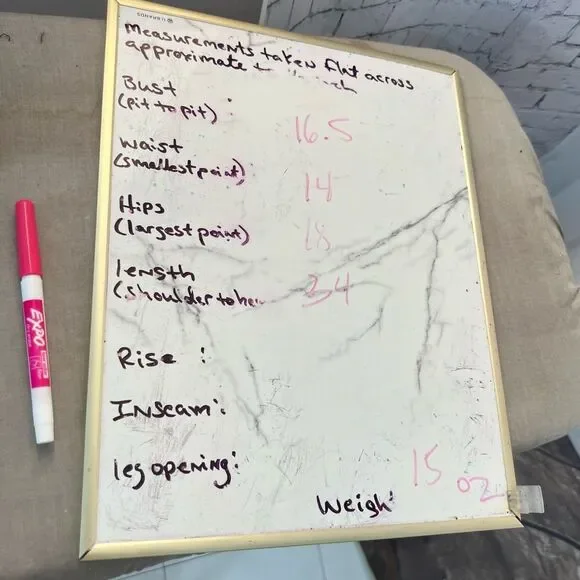 U BRANDS
Measurements taken flat across
approximate
Bust :
(pit to pit)
16.5
Waist
(smallest point)
14
Hips
(largest point)
18
length
(shoulder to hem
34
Rise :
Inseam :
leg opening :
15 oz
Weigh
EXPO